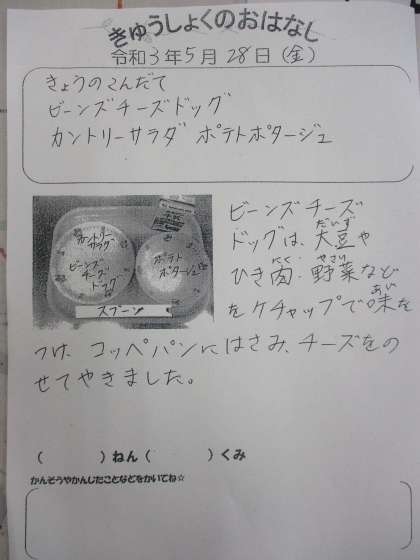 きゅうしょくのおはなし
令和3年5月28日(金)
きょうのこんだて
ビーンズチーズドッグ
カントリーサラダ ポテトポタージュ
カントリーサラダ
ビーンズチーズドッグ
ポテトポタージュ
スプーン
ビーンズチーズ
ドッグは、大豆や
だいず
ひき肉・野菜など
にく やさい
をケチャップで味を
あじ
つけ、コッペパンにはさみ、チーズをの
せてやきました。
( )ねん( )くみ
かんそうやかんじたことなどをかいてね☆